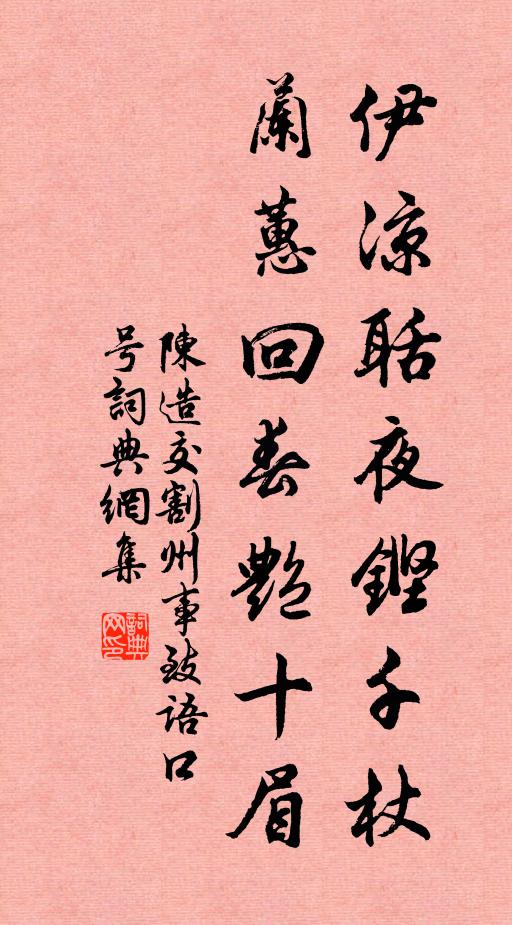 伊涼聒夜鏗千杖
蘭蕙回春艷十眉
陳造交割州事致语口
号詞典網集
詞典网印